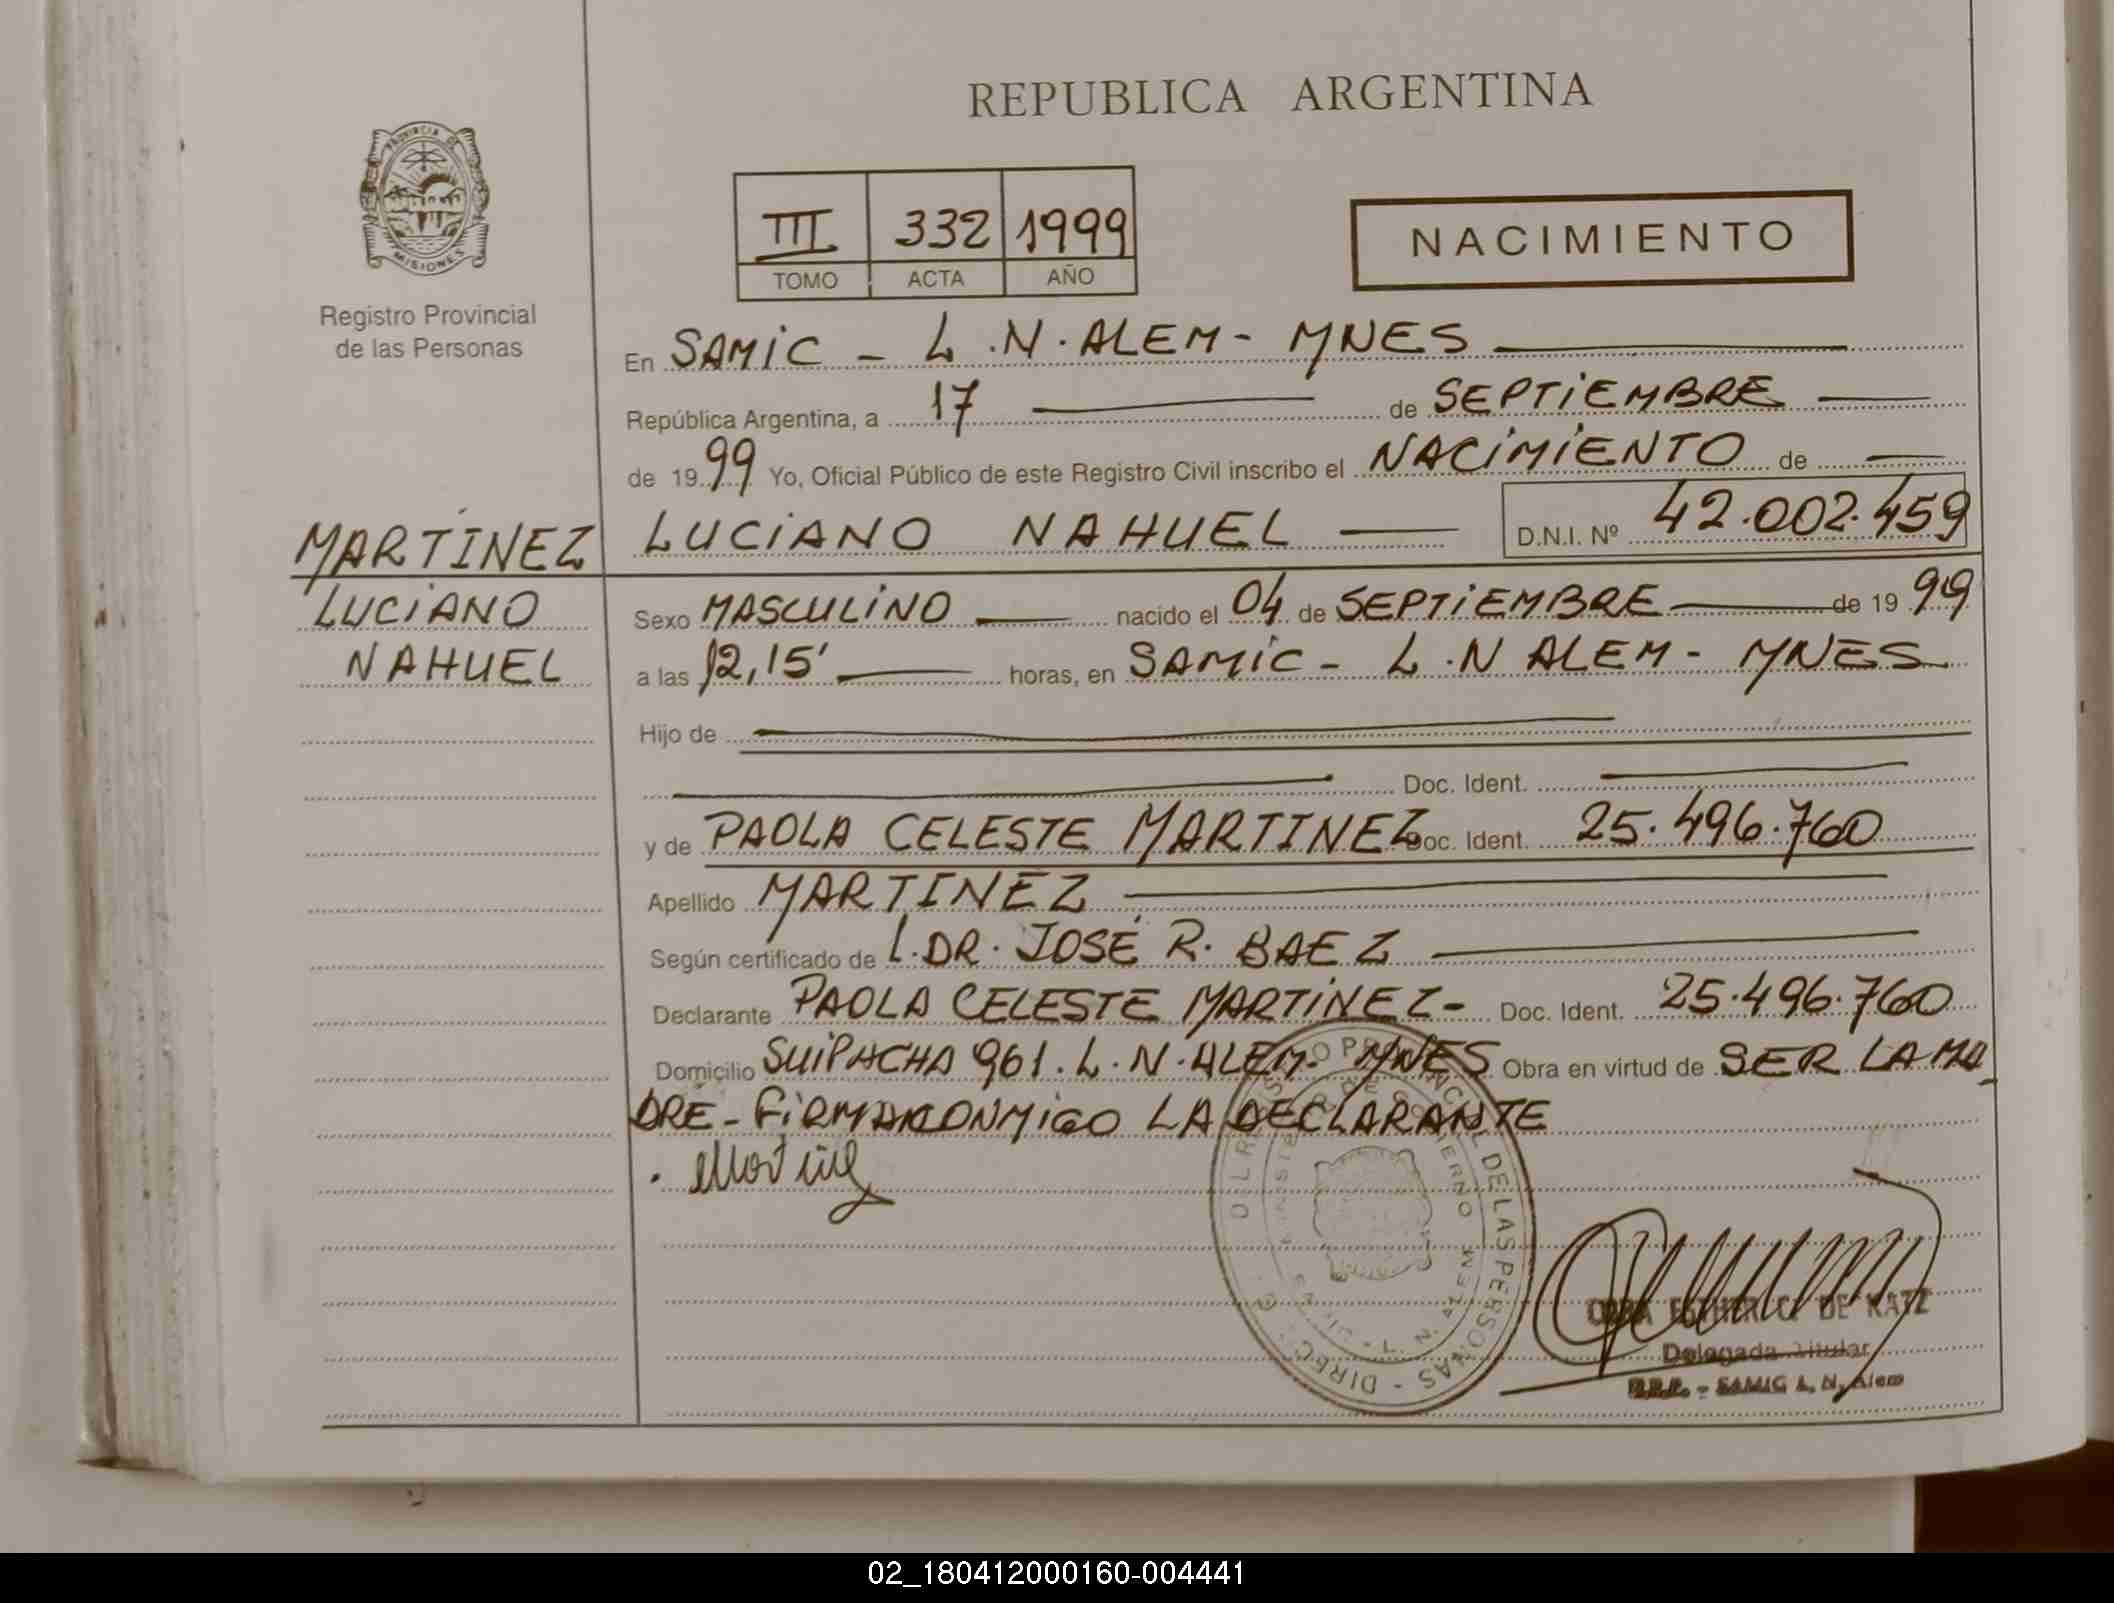 REPUBLICA ARGENTINA
PROVINCIA DE
MISIONES
Registro Provincial
de las Personas
III 332 1999
TOMO ACTA AÑO
NACIMIENTO
En SAMIC - L.N.ALEM - MNES
República Argentina, a 17 de SEPTIEMBRE
de 1999 Yo, Oficial Público de este Registro Civil inscribo el NACIMIENTO de
MARTINEZ LUCIANO NAHUEL D.N.I. Nº 42.002.459
LUCIANO
NAHUEL
Sexo MASCULINO nacido el 04 de SEPTIEMBRE de 1999
a las 12,15' horas, en SAMIC - L.N ALEM - MNES
Hijo de
Doc. Ident.
y de PAOLA CELESTE MARTINEZ Doc. Ident. 25.496.760
Apellido MARTINEZ
Según certificado de L.DR. JOSÉ R. BAEZ
Declarante PAOLA CELESTE MARTINEZ - Doc. Ident. 25.496.760
Domicilio SUIPACHA 961. L.N.ALEM - MNES Obra en virtud de SER LA MA
DRE - FIRMA CONMIGO LA DECLARANTE
ESTHER C. DE KATZ
Delegada Titular
R.P.P. - SAMIC L. N. Alem
02_180412000160-004441